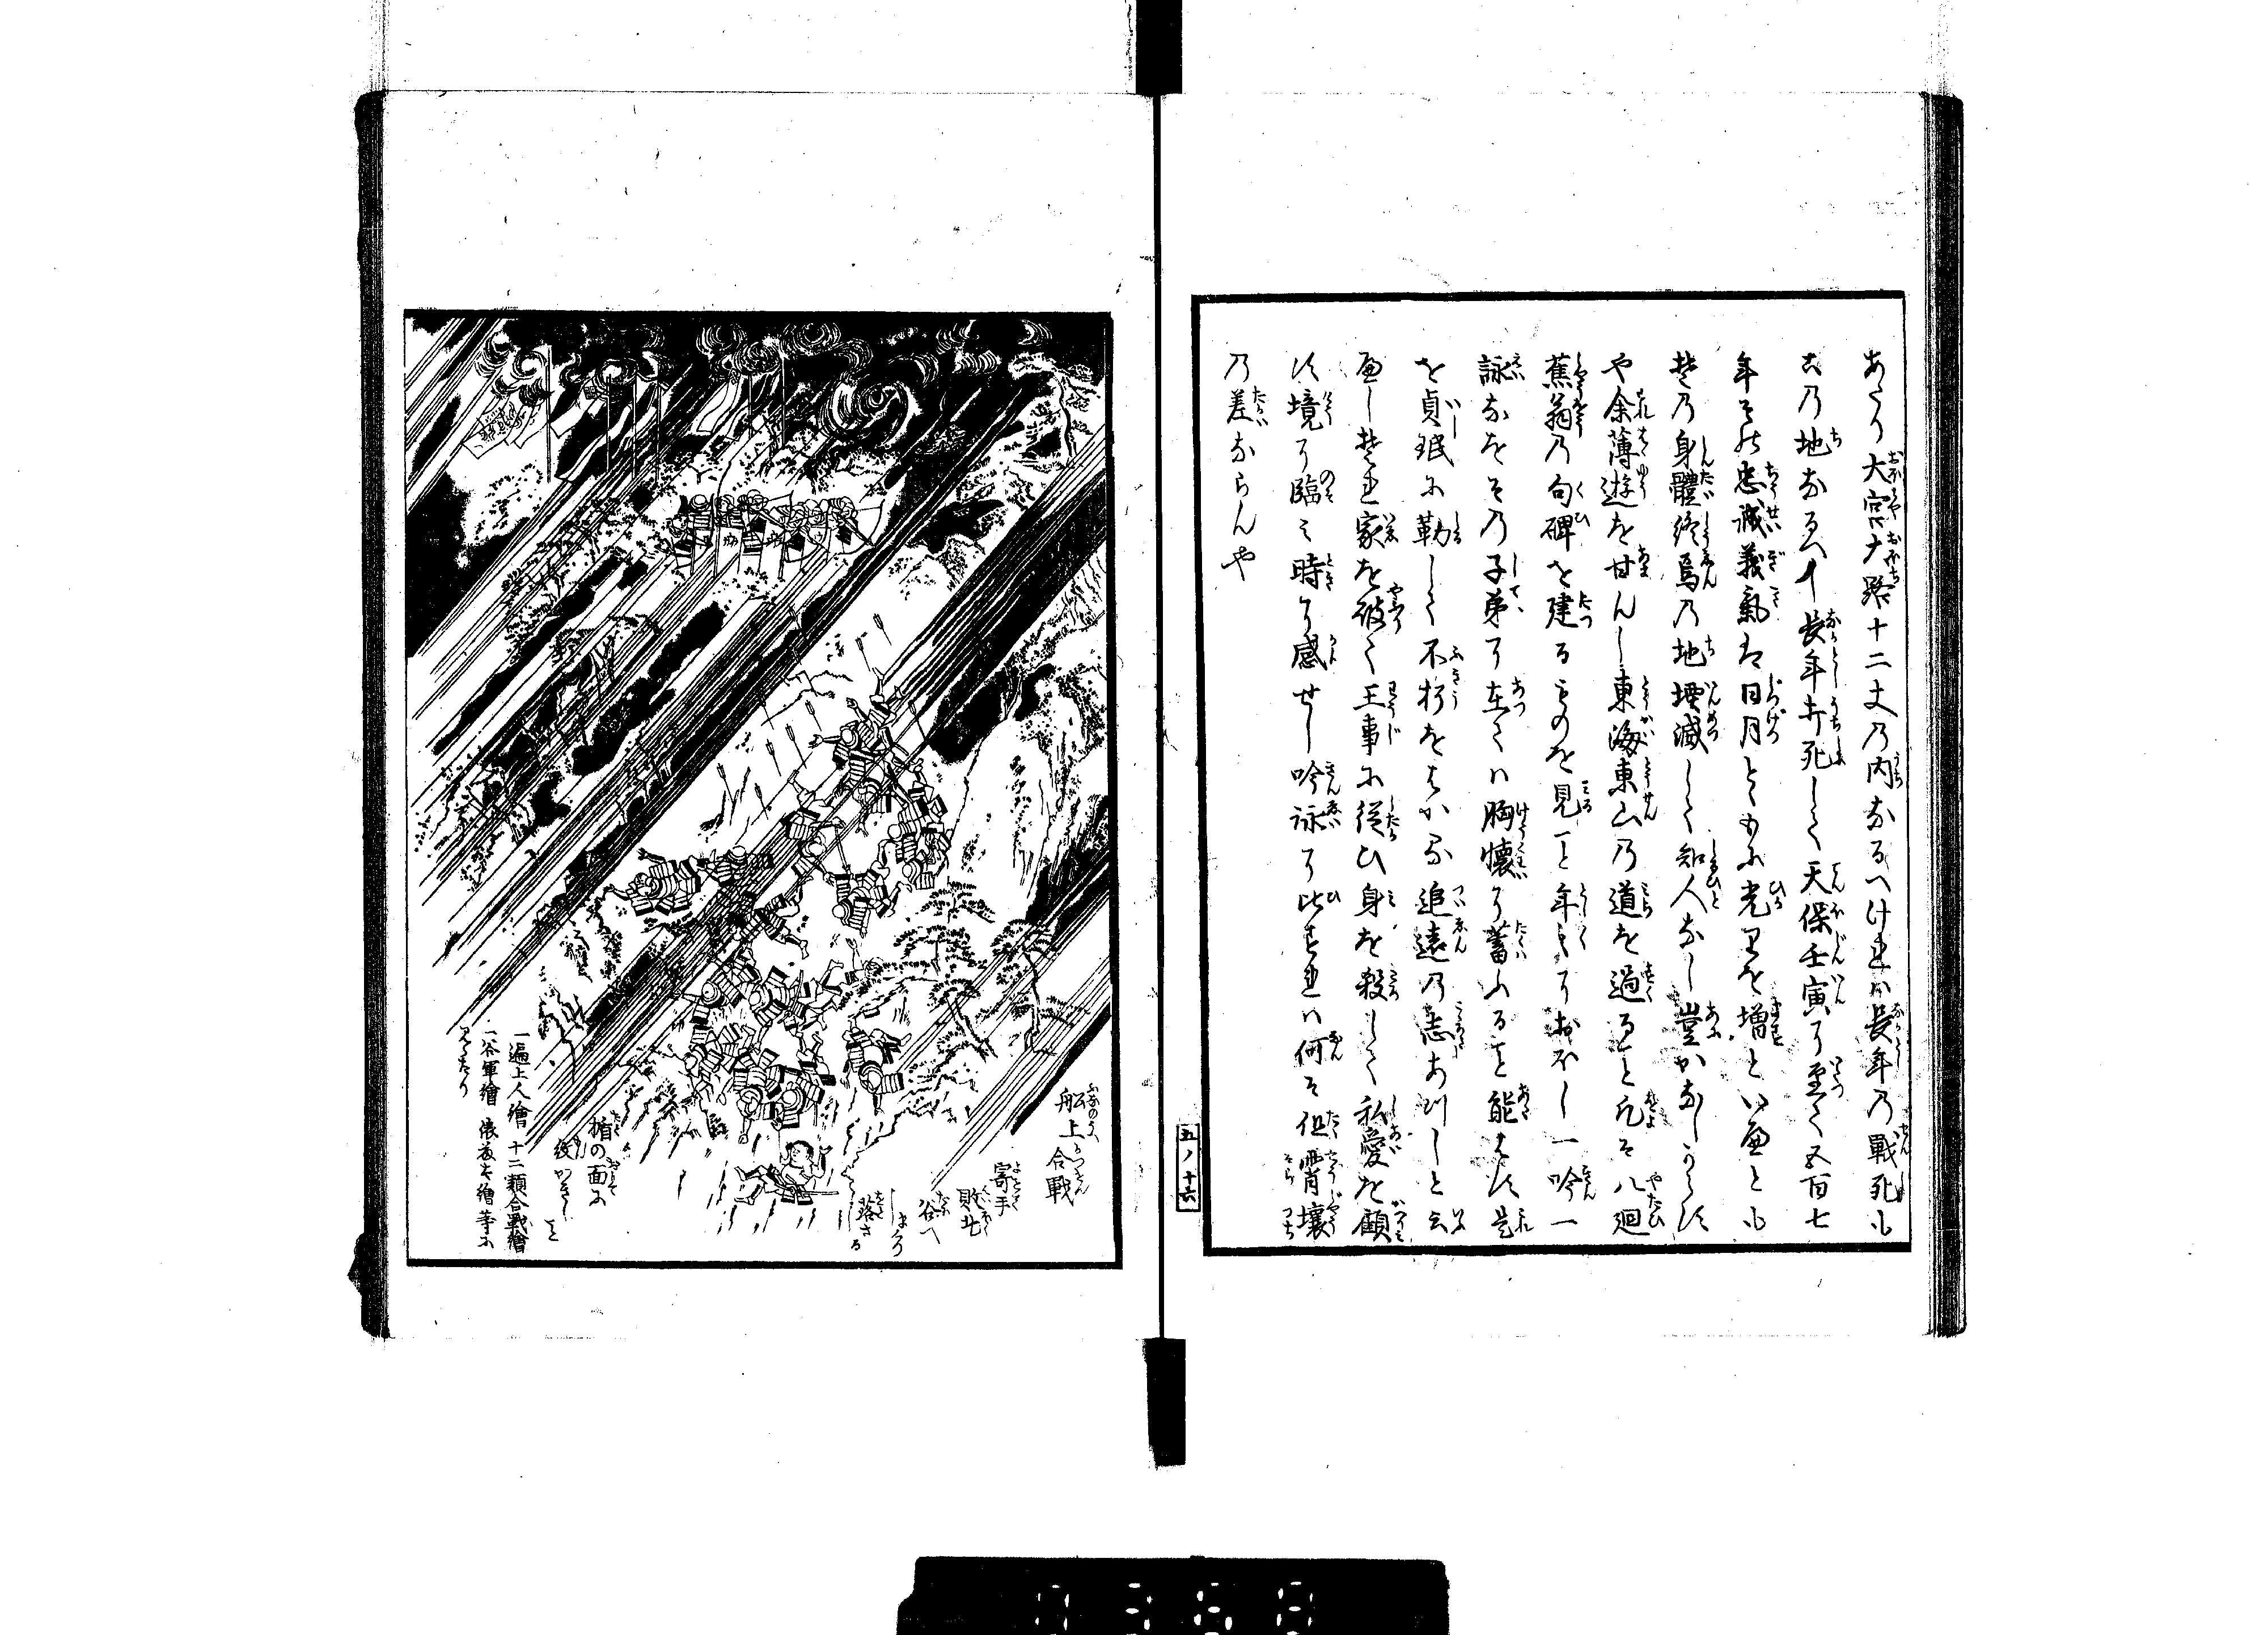 あたり大宮大路十二丈乃内なるへけれは長年乃戦死も
古乃地なるへし長年討死して天保壬寅に至て五百七
年その忠誠義氣は日月とともに光りを増といへとも
其乃身體終焉乃地堙滅して知人なし豈かなしからす
や余薄遊を甘んし東海東山乃道を過ること凡そ八廻
蕉翁乃句碑を建るものを見こと年々におほし一吟一
詠なをその子弟に在ては胸懐に蓄ふること能はす是
を貞珉に勒して不朽をはかる追遠乃志ありしと云
へし其家を破て王事に従ひ身を殺して私愛を顧
す境に臨み時に感せし吟詠に比すれは何そ但霄壤
乃差ならんや
五ノ十六
船上合戦
寄手
敗北
谷へ
まろ
落さる
楯の面に
紋かきし
こと
一遍上人繪 十二類合戦繪
一谷軍繪 俵藤太繪等に
見えたり